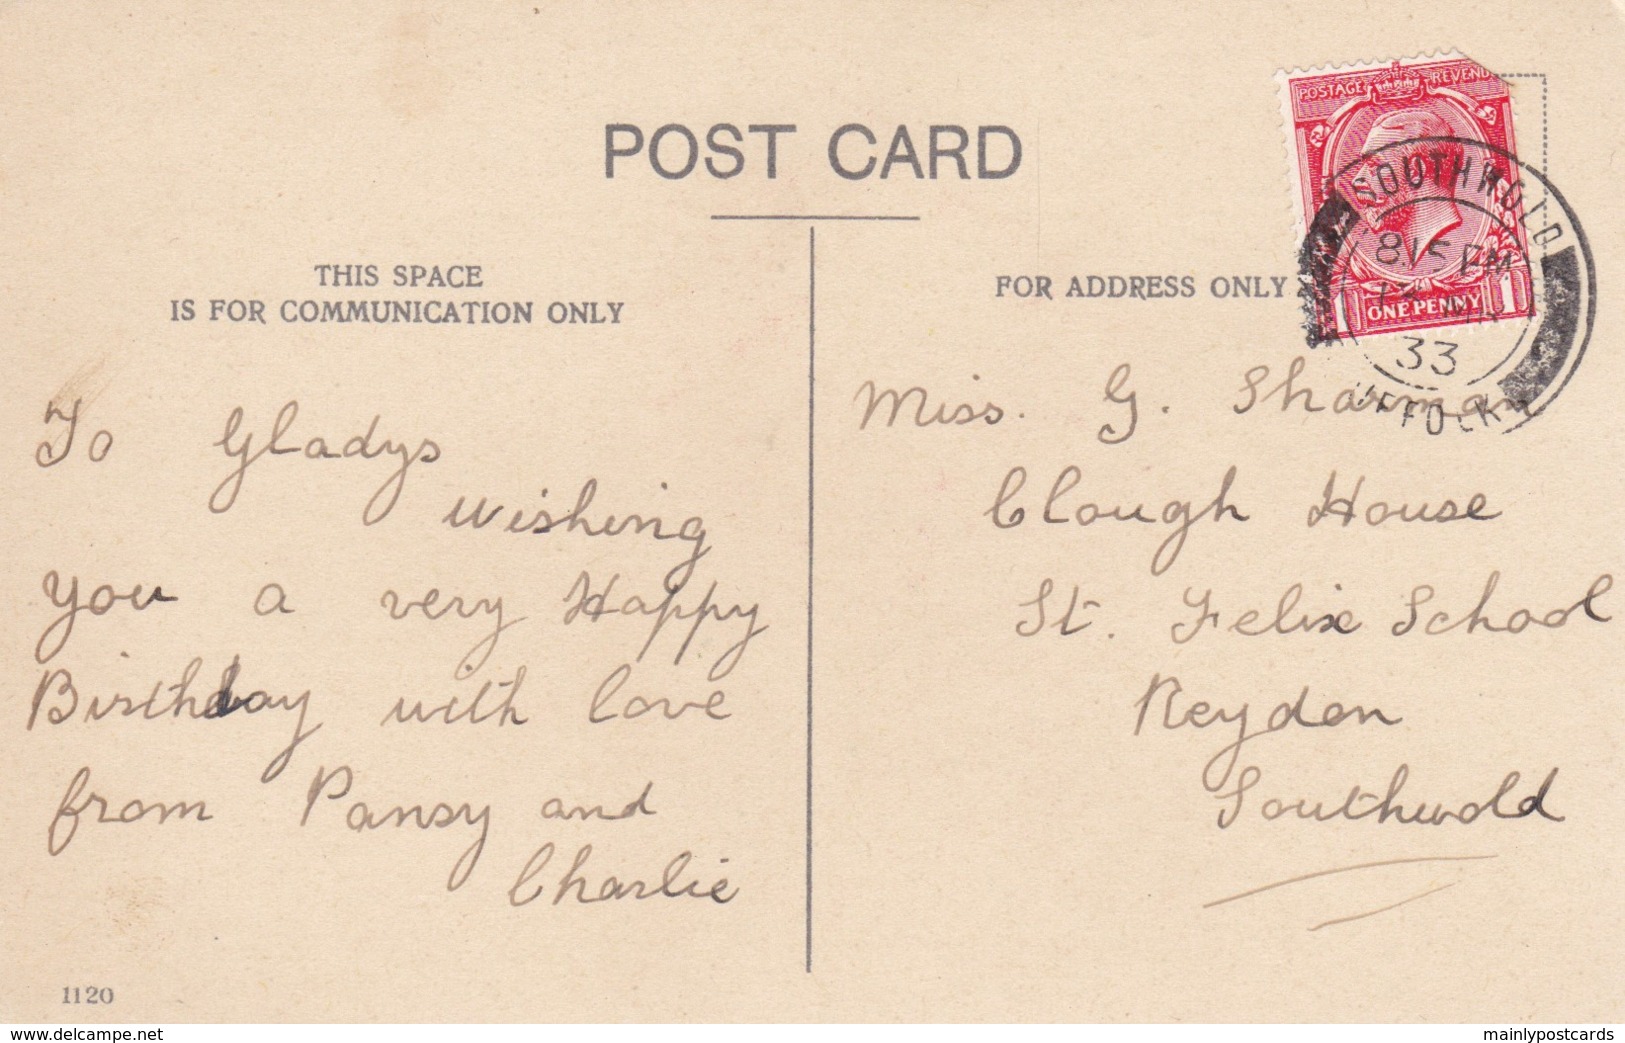 POST CARD
THIS SPACE
IS FOR COMMUNICATION ONLY
FOR ADDRESS ONLY
POSTAGE REVENU
ONE PENNY
1 1
SOUTHWOLD
8.15 PM
33
UFFOLK
To Gladys
wishing
you a very Happy
Birthday with love
from Pansy and
Charlie
Miss. G. Sharman
Clough House
St. Felix School
Reydon
Southwold
1120
www.delcampe.net
mainlypostcards